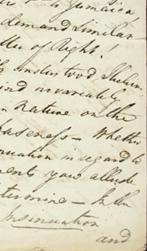 to Jamaica
demand similar
tter of Right!
understood
and invariably
Nature on the
baseness — Whethe
nuation in regard to
ment you allude
termine — In the
Insinuation
and